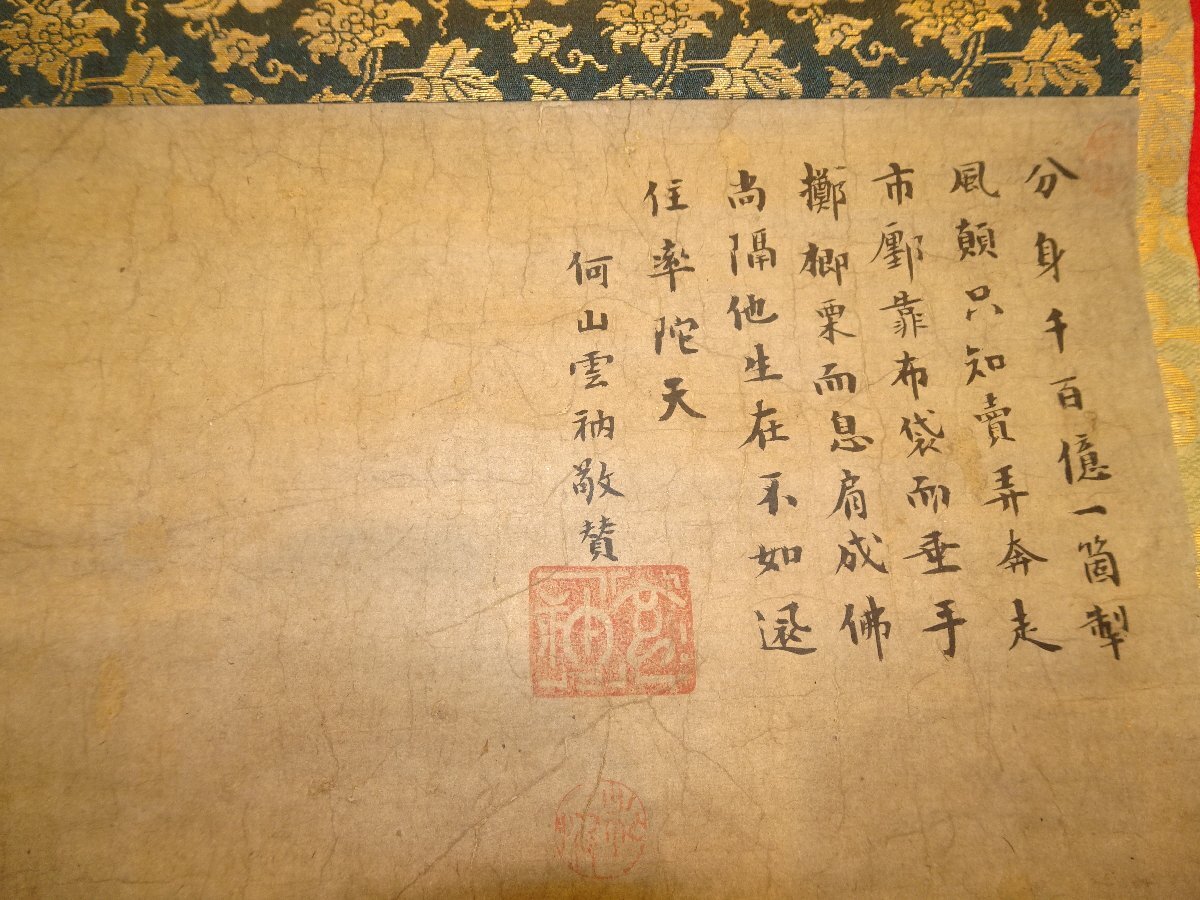 分身千百億一箇掣
風顛只知賣弄奔走
市鄽靠布袋而垂手
擲楖栗而息肩成佛
尚隔他生在不如還
住率陀天
何山雲衲敬賛